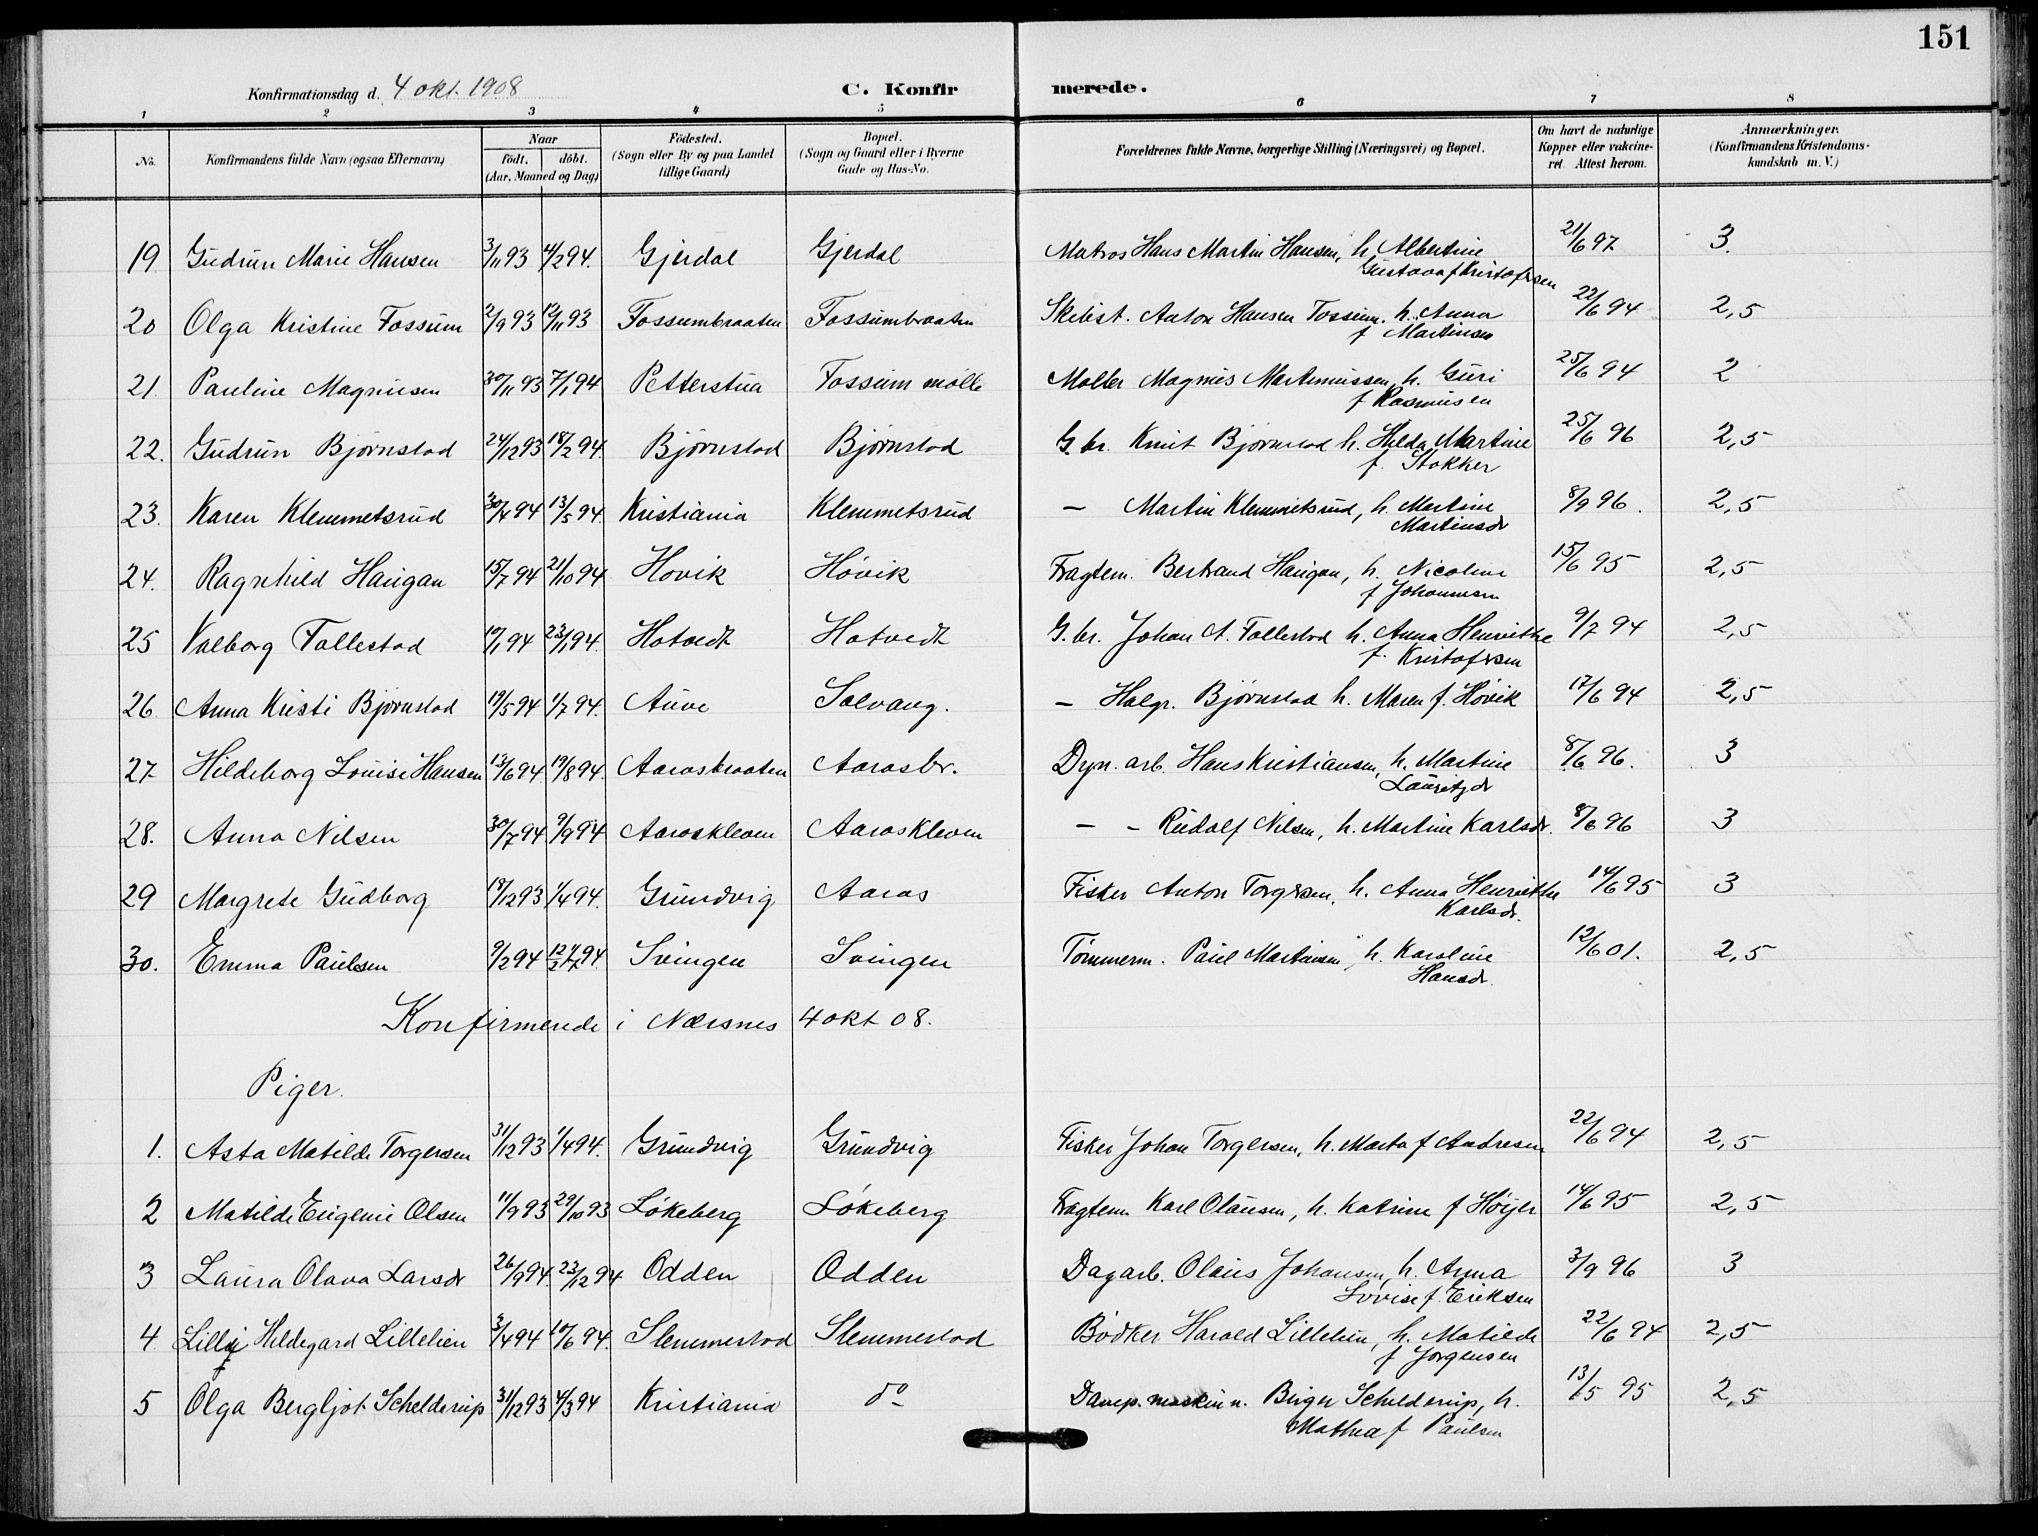 151
Konfirmationsdag d. 4 okt. 1908
C. Konfirmerede.
1 2 3 4 5 6 7 8
No. Konfirmandens fulde Navn (ogsaa Efternavn) Naar födt. döbt. (Aar, Maaned og Dag) Födested. (Sogn eller By og paa Landet tillige Gaard) Bopæl. (Sogn og Gaard eller i Byerne Gade og Hus-No. Forældrenes fulde Navne, borgerlige Stilling (Næringsvei) og Bopæl. Om havt de naturlige Kopper eller vakcineret. Attest herom. Anmærkninger. (Konfirmandens Kristendomskundskab m. V.)
19 Gudrun Marie Hansen 3/11 93 4/2 94. Gjerdal Gjerdal Matros Hans Martin Hansen, h. Albertine 21/6 97. 3.
Gustava f Kristofersen
20 Olga Kristine Fossum 2/9 93 12/11 93 Fossumbraaten Fossumbraaten Skibist. Anton Hansen Fossum. h. Anna 22/6 94 2,5
f Martinsen
21. Pauline Magnusen 30/11 93 7/1 94 Petterstua Fossum mølle Møller Magnus Martinussen, h. Guri 25/6 94 2
f Rasmusen
22. Gudrun Bjørnstad 24/12 93 18/2 94. Bjørnstad Bjørnstad G. br. Knut Bjørnstad h. Hilda Martine 25/6 96 2,5
f. Stokker
23. Karen Klemmetsrud 30/4 94 13/5 94. Kristiania Klemmetsrud — Martin Klemmetsrud, h. Martine 8/9 96. 2,5
Martinsdr
24. Ragnhild Haugan 15/7 94 21/10 94. Høvik Høvik Fragtem. Bertrand Haugan, h. Nicoline 15/6 95 2,5
f Johannesen
25 Valborg Follestad 94 23/1 94. Hotvedt Hotvedt G. br. Johan A. Follestad h. Anna Henriette 9/7 94 2,5
f. Kristofersen
26 Anna Kristi Bjørnstad 19/5 94 1/7 94. Auve Solvang. — Halgr. Bjørnstad h. Maren f. Høvik 17/6 94 2,5
27. Hildeborg Louise Hansen 13/6 94 19/8 94. Aarosbraaten Aarosbr. Dyn. arb. Hans Kristiansen, h. Martine 8/6 96. 3
Lauritzdr
28. Anna Nilsen 30/7 94. 9/9 94 Aaroskleven Aaroskleven — — Rudolf Nilsen, h. Martine Karlsdr. 8/6 96 3
29 Margrete Gudborg 18/12 93 1/4 94. Grundvig Aaros Fisker Anton Torgersen, h. Anna Henriette 14/6 95 3
Karlsdr.
30. Emma Paulsen 9/2 94 94. Svingen Svingen Tømmerm. Paul Martinsen, h. Karoline 12/6 01. 2,5
Hansdr.
Konfirmerede i Næsnes 4 okt 08.
Piger.
1. Asta Matilde Torgersen 31/12 93 1/4 94. Grundvig Grundvig Fisker Johan Torgersen, h. Marta f Andresen 22/6 94 2,5
2 Matilde Eugenie Olsen 11/9 93 29/10 93 Løkeberg Løkeberg Fragtem Karl Olausen, h. Katrine f Høyer 14/6 95 2,5
3 Laura Olava Larsdr 26/9 94. 23/12 94 Odden Odden Dagarb. Olaus Johansen, h. Anna 3/9 96 3
Lovise f. Eriksen
4. Lilly Hildegard Lillelien 3/4 94 10/6 94. Slemmestad Slemmestad Bødker Harald Lillelien, h. Matilde 22/6 94 2,5
f Jørgensen
5 Olga Bergljot Schelderup 31/12 93 4/3 94 Kristiania do Damp. maskin n. Birger Schelderup, h. 13/5 95 2,5
Mathea f Paulsen